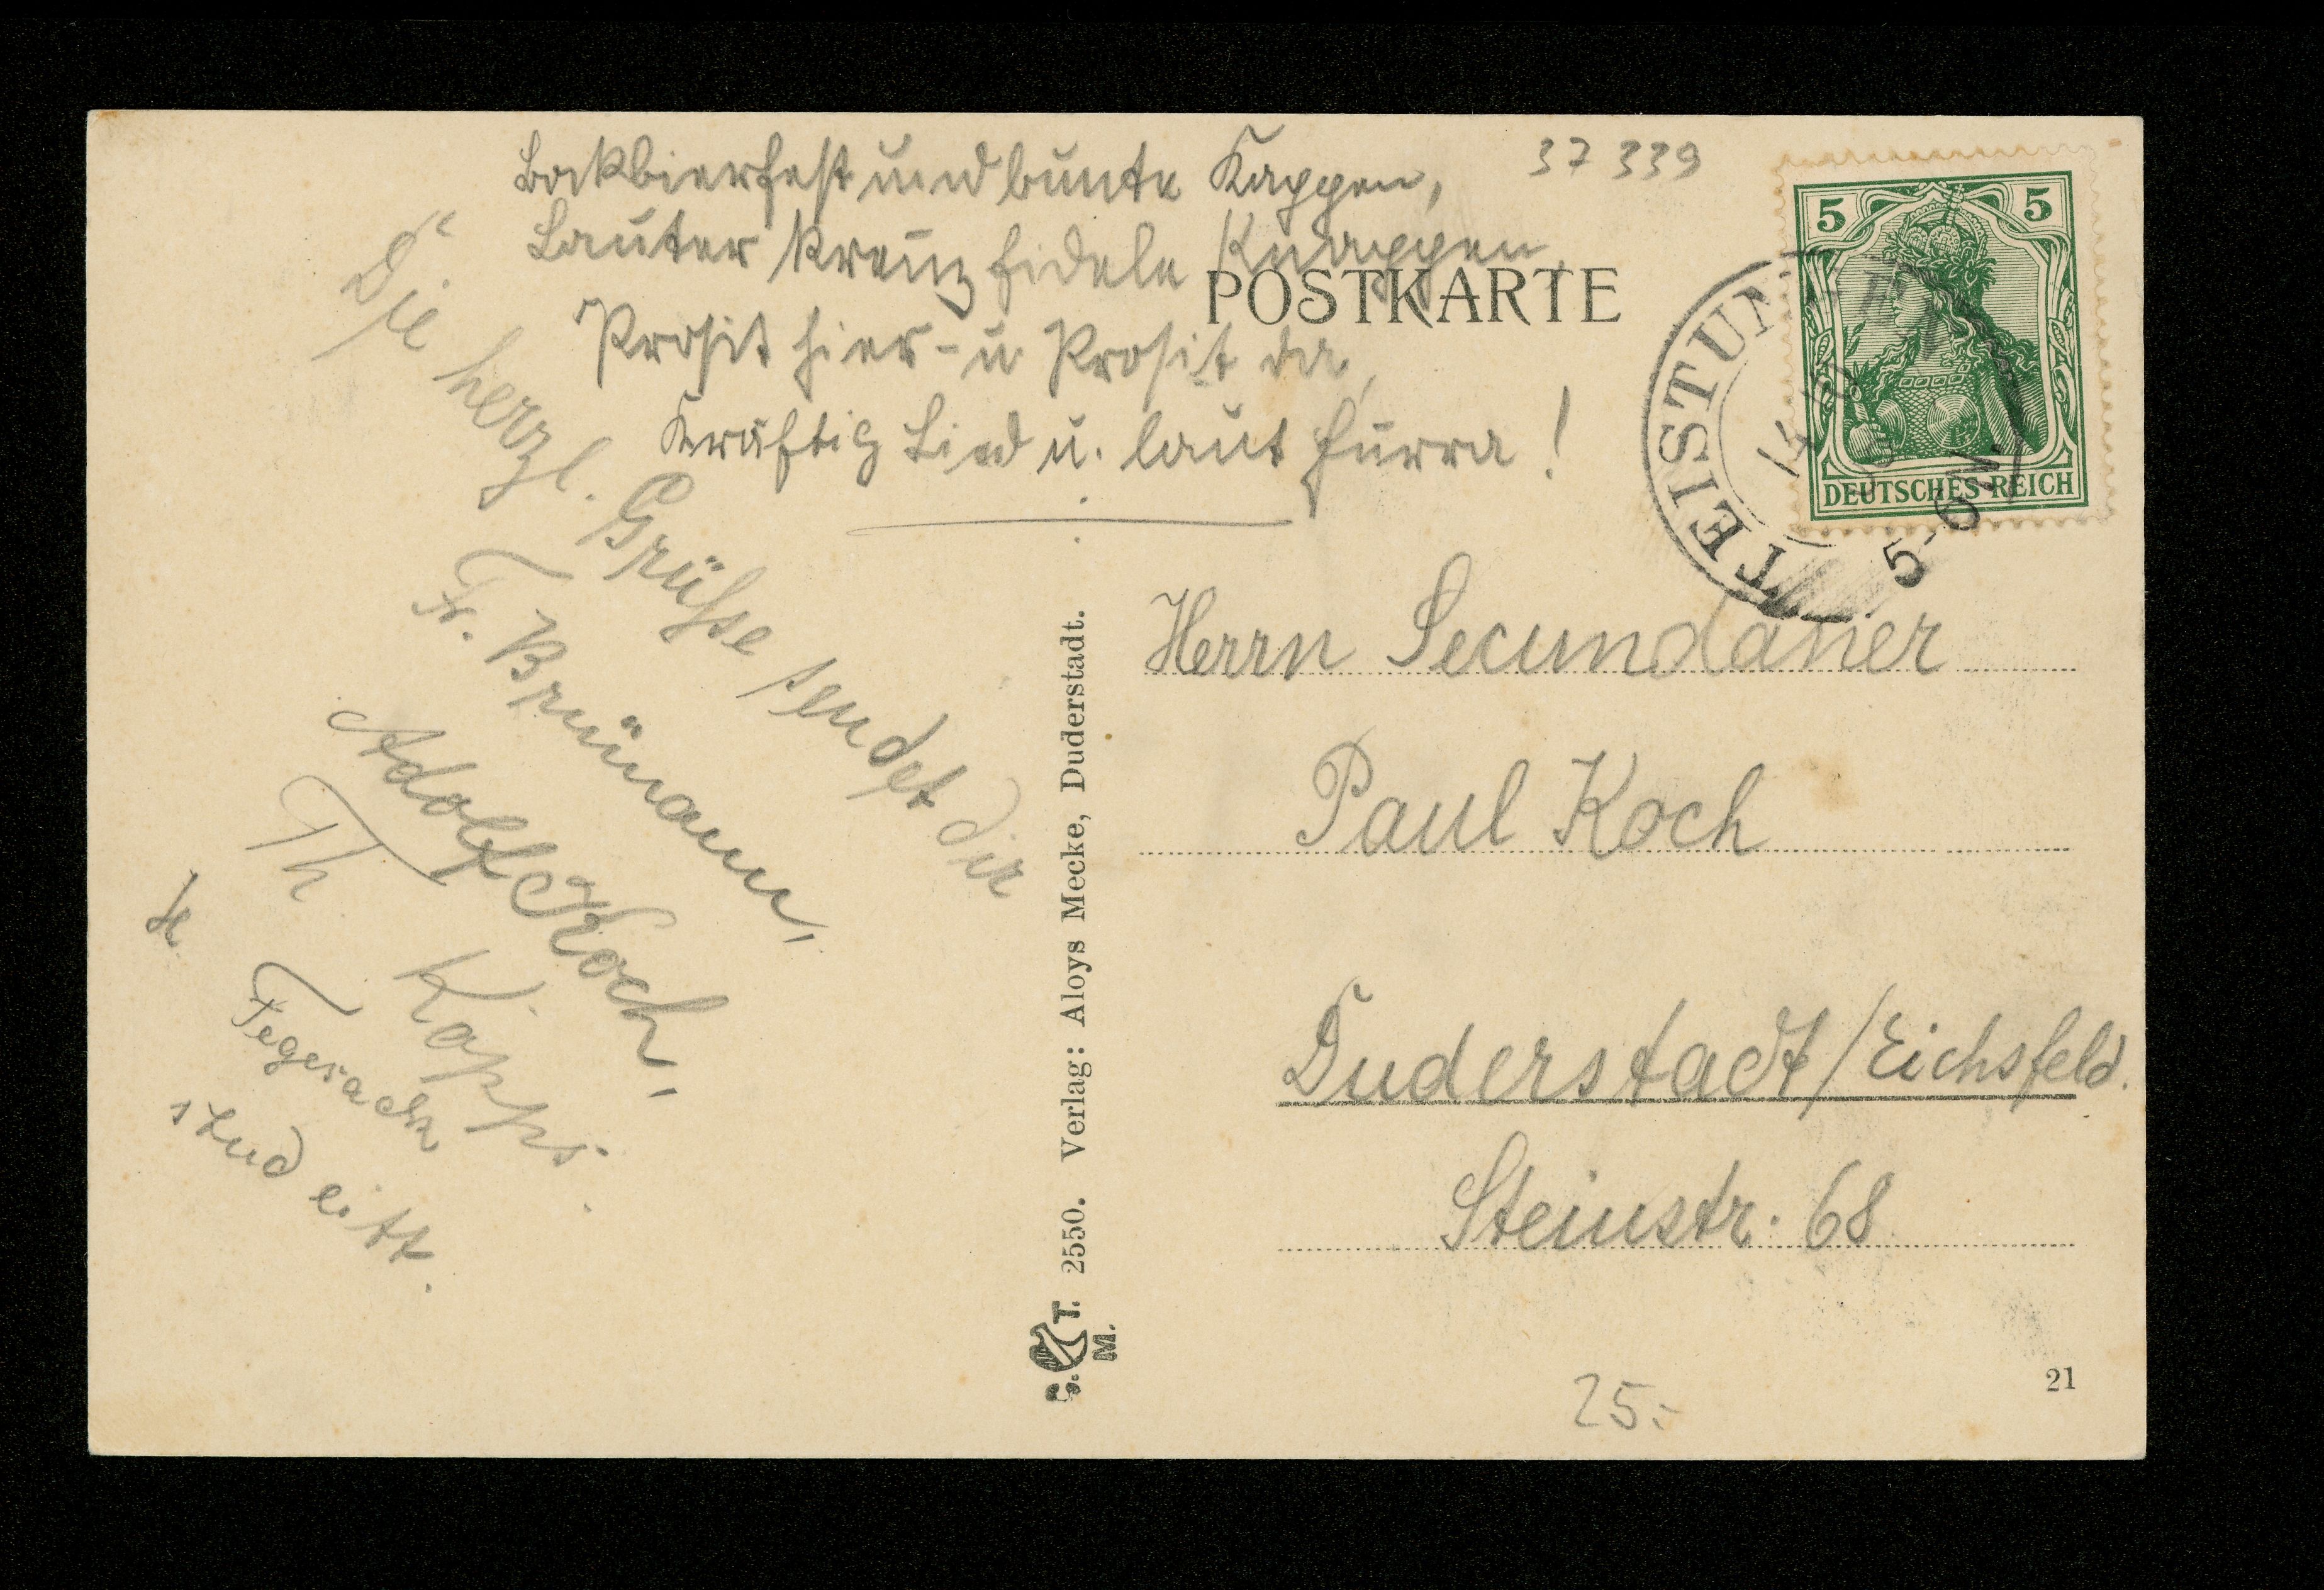 Bockbierfest und bunte Kappen,
Lauter kreuzfidele Knappen,
Prosit hier - u Prosit da,
Kräftig Lied u. laut Hurra!
37 339
POSTKARTE
5 5
DEUTSCHES REICH
TEISTUN
5-6N.
Die herzl. Grüsse sendet dir
Fr. Brümann,
Adolf Koch,
Th Käpps.
Fegesack
stud
Herrn Secundaner
Paul Koch
Duderstadt/Eichsfeld.
Steinstr. 68
C. T. M. 2550. Verlag: Aloys Mecke, Duderstadt.
25.-
21